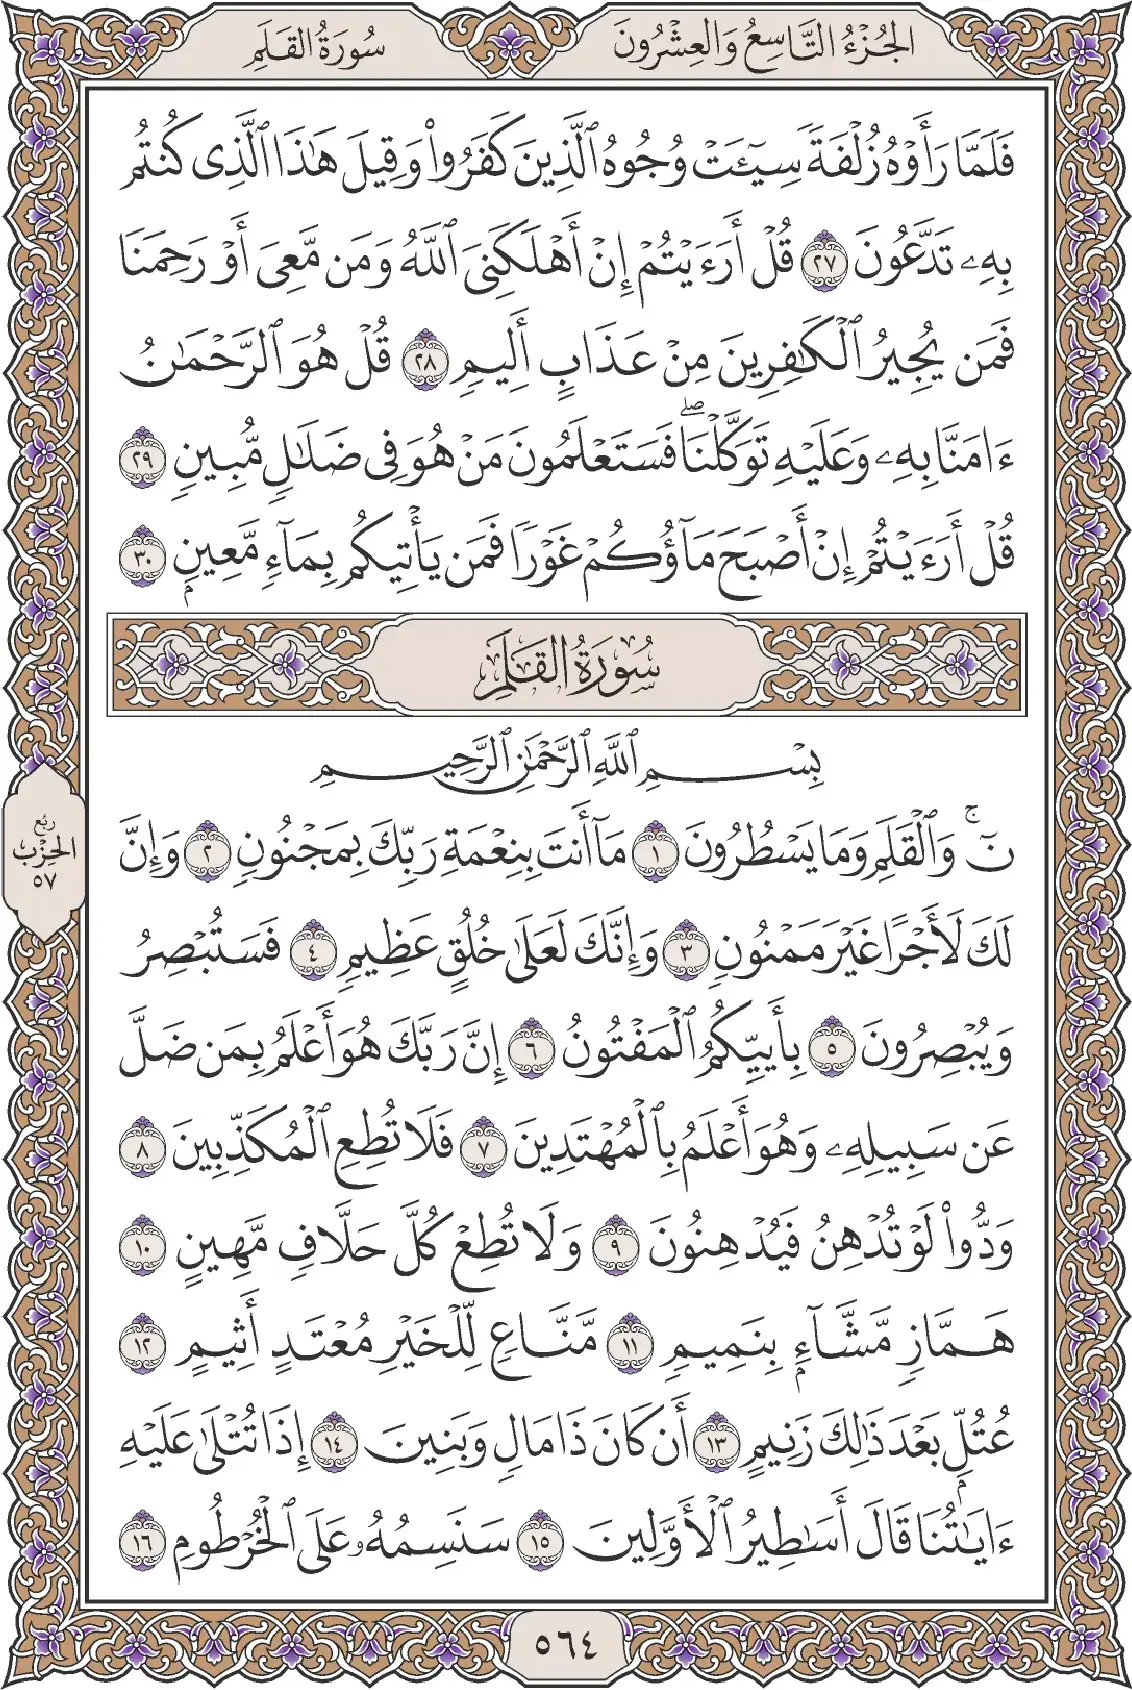 الجُزْءُ التَّاسِعُ وَالعِشْرُونَ
سُورَةُ القَلَمِ
فَلَمَّا رَأَوْهُ زُلْفَةً سِيٓـَٔتْ وُجُوهُ ٱلَّذِينَ كَفَرُوا۟ وَقِيلَ هَٰذَا ٱلَّذِى كُنتُم
بِهِۦ تَدَّعُونَ ٢٧ قُلْ أَرَءَيْتُمْ إِنْ أَهْلَكَنِىَ ٱللَّهُ وَمَن مَّعِىَ أَوْ رَحِمَنَا
فَمَن يُجِيرُ ٱلْكَٰفِرِينَ مِنْ عَذَابٍ أَلِيمٍ ٢٨ قُلْ هُوَ ٱلرَّحْمَٰنُ
ءَامَنَّا بِهِۦ وَعَلَيْهِ تَوَكَّلْنَا ۖ فَسَتَعْلَمُونَ مَنْ هُوَ فِى ضَلَٰلٍ مُّبِينٍ ٢٩
قُلْ أَرَءَيْتُمْ إِنْ أَصْبَحَ مَآؤُكُمْ غَوْرًا فَمَن يَأْتِيكُم بِمَآءٍ مَّعِينٍۭ ٣٠
سُورَةُ القَلَمِ
بِسْمِ ٱللَّهِ ٱلرَّحْمَٰنِ ٱلرَّحِيمِ
نٓ ۚ وَٱلْقَلَمِ وَمَا يَسْطُرُونَ ١ مَآ أَنتَ بِنِعْمَةِ رَبِّكَ بِمَجْنُونٍ ٢ وَإِنَّ
لَكَ لَأَجْرًا غَيْرَ مَمْنُونٍ ٣ وَإِنَّكَ لَعَلَىٰ خُلُقٍ عَظِيمٍ ٤ فَسَتُبْصِرُ
وَيُبْصِرُونَ ٥ بِأَييِّكُمُ ٱلْمَفْتُونُ ٦ إِنَّ رَبَّكَ هُوَ أَعْلَمُ بِمَن ضَلَّ
عَن سَبِيلِهِۦ وَهُوَ أَعْلَمُ بِٱلْمُهْتَدِينَ ٧ فَلَا تُطِعِ ٱلْمُكَذِّبِينَ ٨
وَدُّوا۟ لَوْ تُدْهِنُ فَيُدْهِنُونَ ٩ وَلَا تُطِعْ كُلَّ حَلَّافٍ مَّهِينٍ ١٠
هَمَّازٍ مَّشَّآءٍۭ بِنَمِيمٍ ١١ مَّنَّاعٍ لِّلْخَيْرِ مُعْتَدٍ أَثِيمٍ ١٢
عُتُلٍّۭ بَعْدَ ذَٰلِكَ زَنِيمٍ ١٣ أَن كَانَ ذَا مَالٍ وَبَنِينَ ١٤ إِذَا تُتْلَىٰ عَلَيْهِ
ءَايَٰتُنَا قَالَ أَسَٰطِيرُ ٱلْأَوَّلِينَ ١٥ سَنَسِمُهُۥ عَلَى ٱلْخُرْطُومِ ١٦
رُبُع
الحِزْب
٥٧
٥٦٤